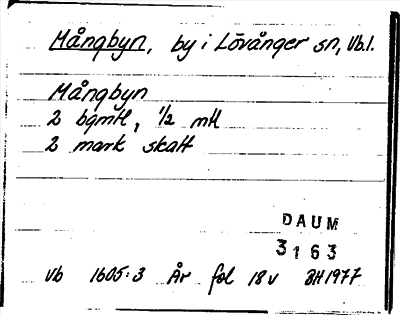 Mångbyn, by i Lövånger sn, Vb.l.
Mångbyn
2 bgmtl, 1/2 mtl
2 mark skatt
DAUM
3163
Vb 1605:3 År fol 18v BH1977